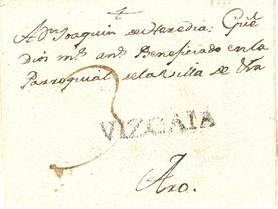 A Dn Joaquin de Heredia: Que
Dios ms. ans. Beneficiado en la
Parroquial de la Villa de
3
VIZCAIA
Aro.